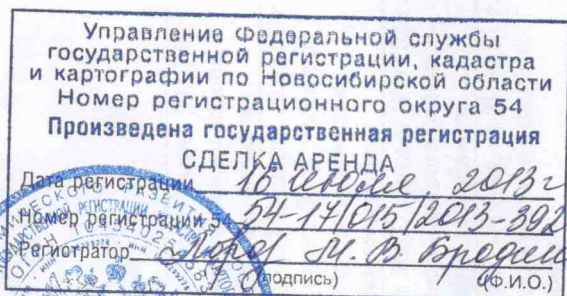 Управление Федеральной службы
государственной регистрации, кадастра
и картографии по Новосибирской области
Номер регистрационного округа 54
Произведена государственная регистрация
СДЕЛКА АРЕНДА
Дата регистрации 16 июля 2013 г
Номер регистрации 54 54-17/015/2013-392
Регистратор М. В.
(подпись) (Ф.И.О.)